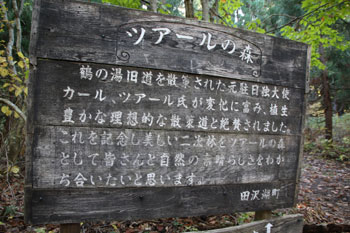 ツアールの森
鶴の湯旧道を散策された元駐日独大使
カール、ツアール氏が変化に富み、植生
豊かな理想的な散策道と絶賛されました。
これを記念し美しい二次林をツアールの森
として皆さんと自然の素晴らしさをわか
ち合いたいと思います。
田沢湖町